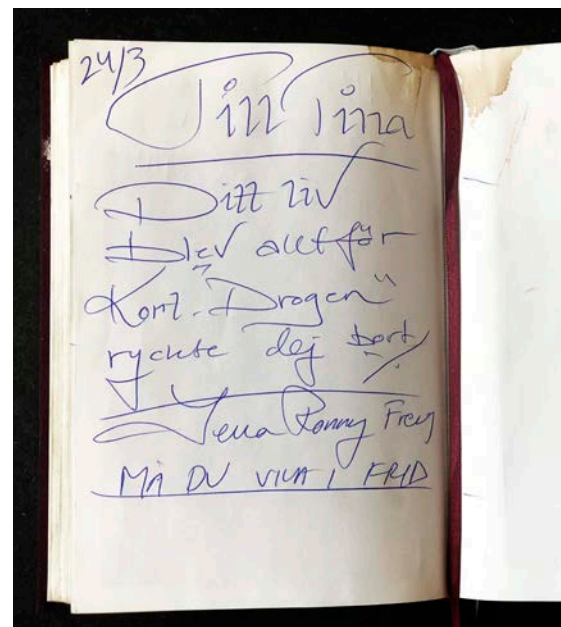 24/3
Till Tina
Ditt liv
Blev allt för
Kort. "Drogen"
ryckte dej bort
Ronny Frey
MÅ DU VILA I FRID